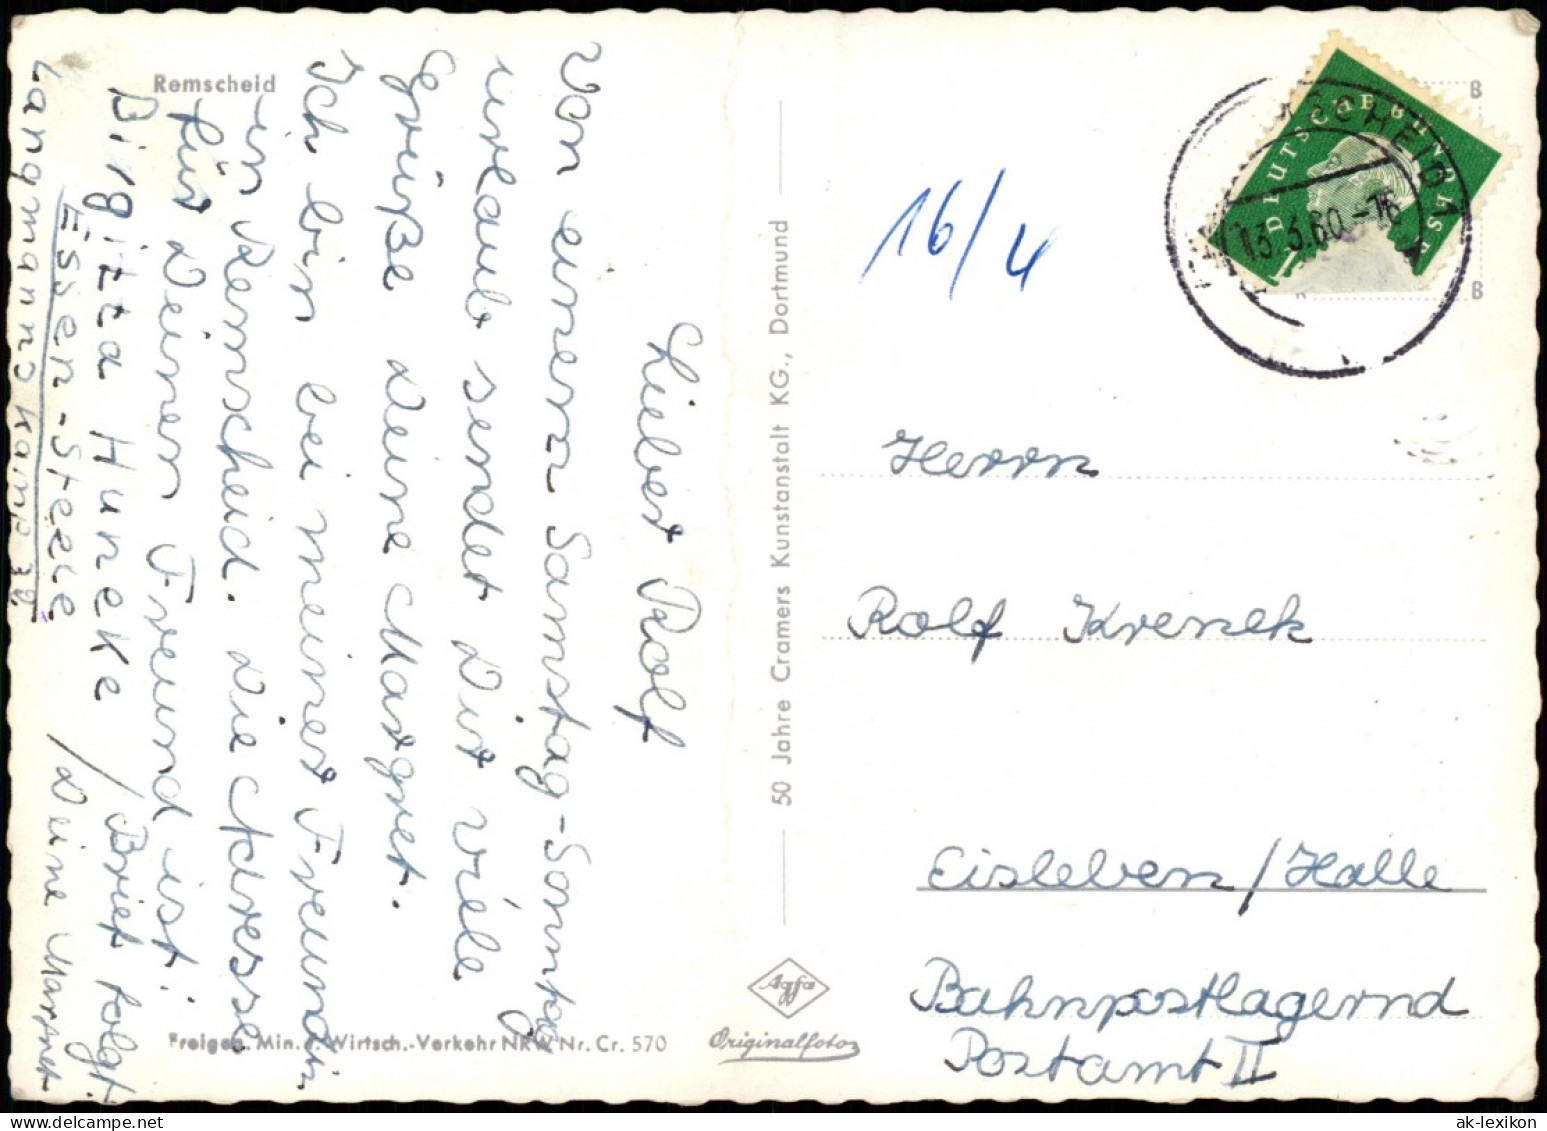 Remscheid
Lieber Rolf
Von einem Samstag-Sonntag
urlaub sendet Dir viele
Grüße Deine Margret.
Ich bin bei meiner Freundin
in Remscheid. Die Adresse
für Deinen Freund ist:
Birgitta Huneke / Brief folgt
Essen-Steele / Deine Margret
Langmannskamp 32
Freigeg. Min. f. Wirtsch.-Verkehr NRW Nr. Cr. 570
50 Jahre Cramers Kunstanstalt KG., Dortmund
Agfa
Originalfoto
DEUTSCHE BUNDESPOST
13.3.60.-16
B
B
16/4
Herrn
Rolf Krenek
Eisleben/Halle
Bahnpostlagernd
Postamt II
ak-lexikon